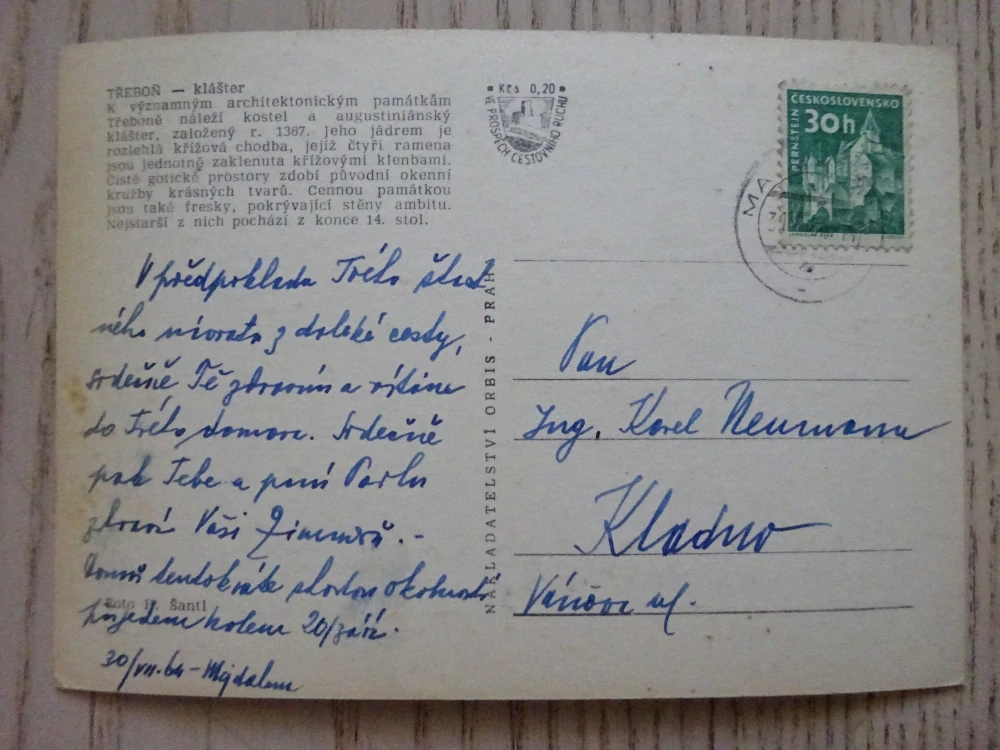 TŘEBOŇ — klášter
K významným architektonickým památkám
Třeboně náleží kostel a augustiniánský
klášter, založený r. 1367. Jeho jádrem je
rozlehlá křížová chodba, jejíž čtyři ramena
jsou jednotně zaklenuta křížovými klenbami.
Čistě gotické prostory zdobí původní okenní
kružby krásných tvarů. Cennou památkou
jsou také fresky, pokrývající stěny ambitu.
Nejstarší z nich pochází z konce 14. stol.
Kčs 0,20
VE PROSPĚCH CESTOVNÍHO RUCHU
ČESKOSLOVENSKO
30h
PERNŠTEJN
MA
V předpokladu Tvého šťast
ného návratu z daleké cesty,
srdečně Tě zdravím a vítáme
do Tvého domova. Srdečně
pak Tebe a paní
zdraví Vaši
tentokráte
pojedeme kolem 20/září.
30/VII.64 - Majdalena
Foto Šantl
NAKLADATELSTVÍ ORBIS - PRAHA
Pan
Ing. Karel Neumann
Kladno
ul.